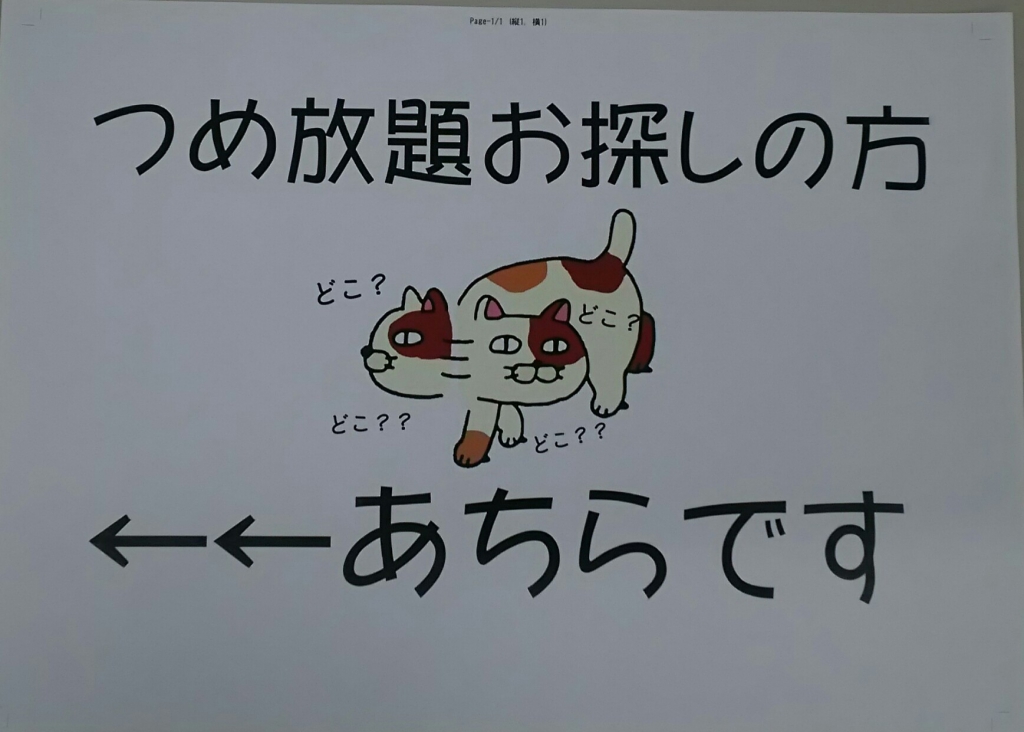 Page-1/1 (縦1, 横1)
つめ放題お探しの方
どこ？
どこ？
どこ？？
どこ？？
←←あちらです